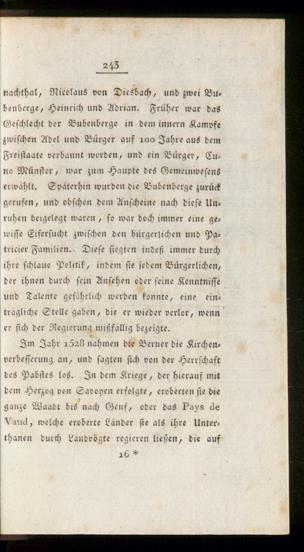 243
nachthal, Nicolaus von Diesbach, und zwei Bu-
benberge, Heinrich und Adrian. Früher war das
Geschlecht der Bubenberge in dem innern Kampfe
zwischen Adel und Bürger auf 100 Jahre aus dem
Freistaate verbannt worden, und ein Bürger, Cu-
no Münster, war zum Haupte des Gemeinwesens
erwählt. Späterhin wurden die Bubenberge zurück
gerufen, und obschon dem Anscheine nach diese Un-
ruhen beigelegt waren, so war doch immer eine ge-
wisse Eifersucht zwischen den bürgerlichen und Pa-
tricier Familien. Diese siegten indeß immer durch
ihre schlaue Politik, indem sie jedem Bürgerlichen,
der ihnen durch sein Ansehen oder seine Kenntnisse
und Talente gefährlich werden konnte, eine ein-
trägliche Stelle gaben, die er wieder verlor, wenn
er sich der Regierung mißfällig bezeigte.
Im Jahr 1528 nahmen die Berner die Kirchen-
verbesserung an, und sagten sich von der Herrschaft
des Pabstes los. In dem Kriege, der hierauf mit
dem Herzog von Savoyen erfolgte, eroberten sie die
ganze Waadt bis nach Genf, oder das Pays de
Vaud, welche eroberte Länder sie als ihre Unter-
thanen durch Landvögte regieren ließen, die auf
16 *